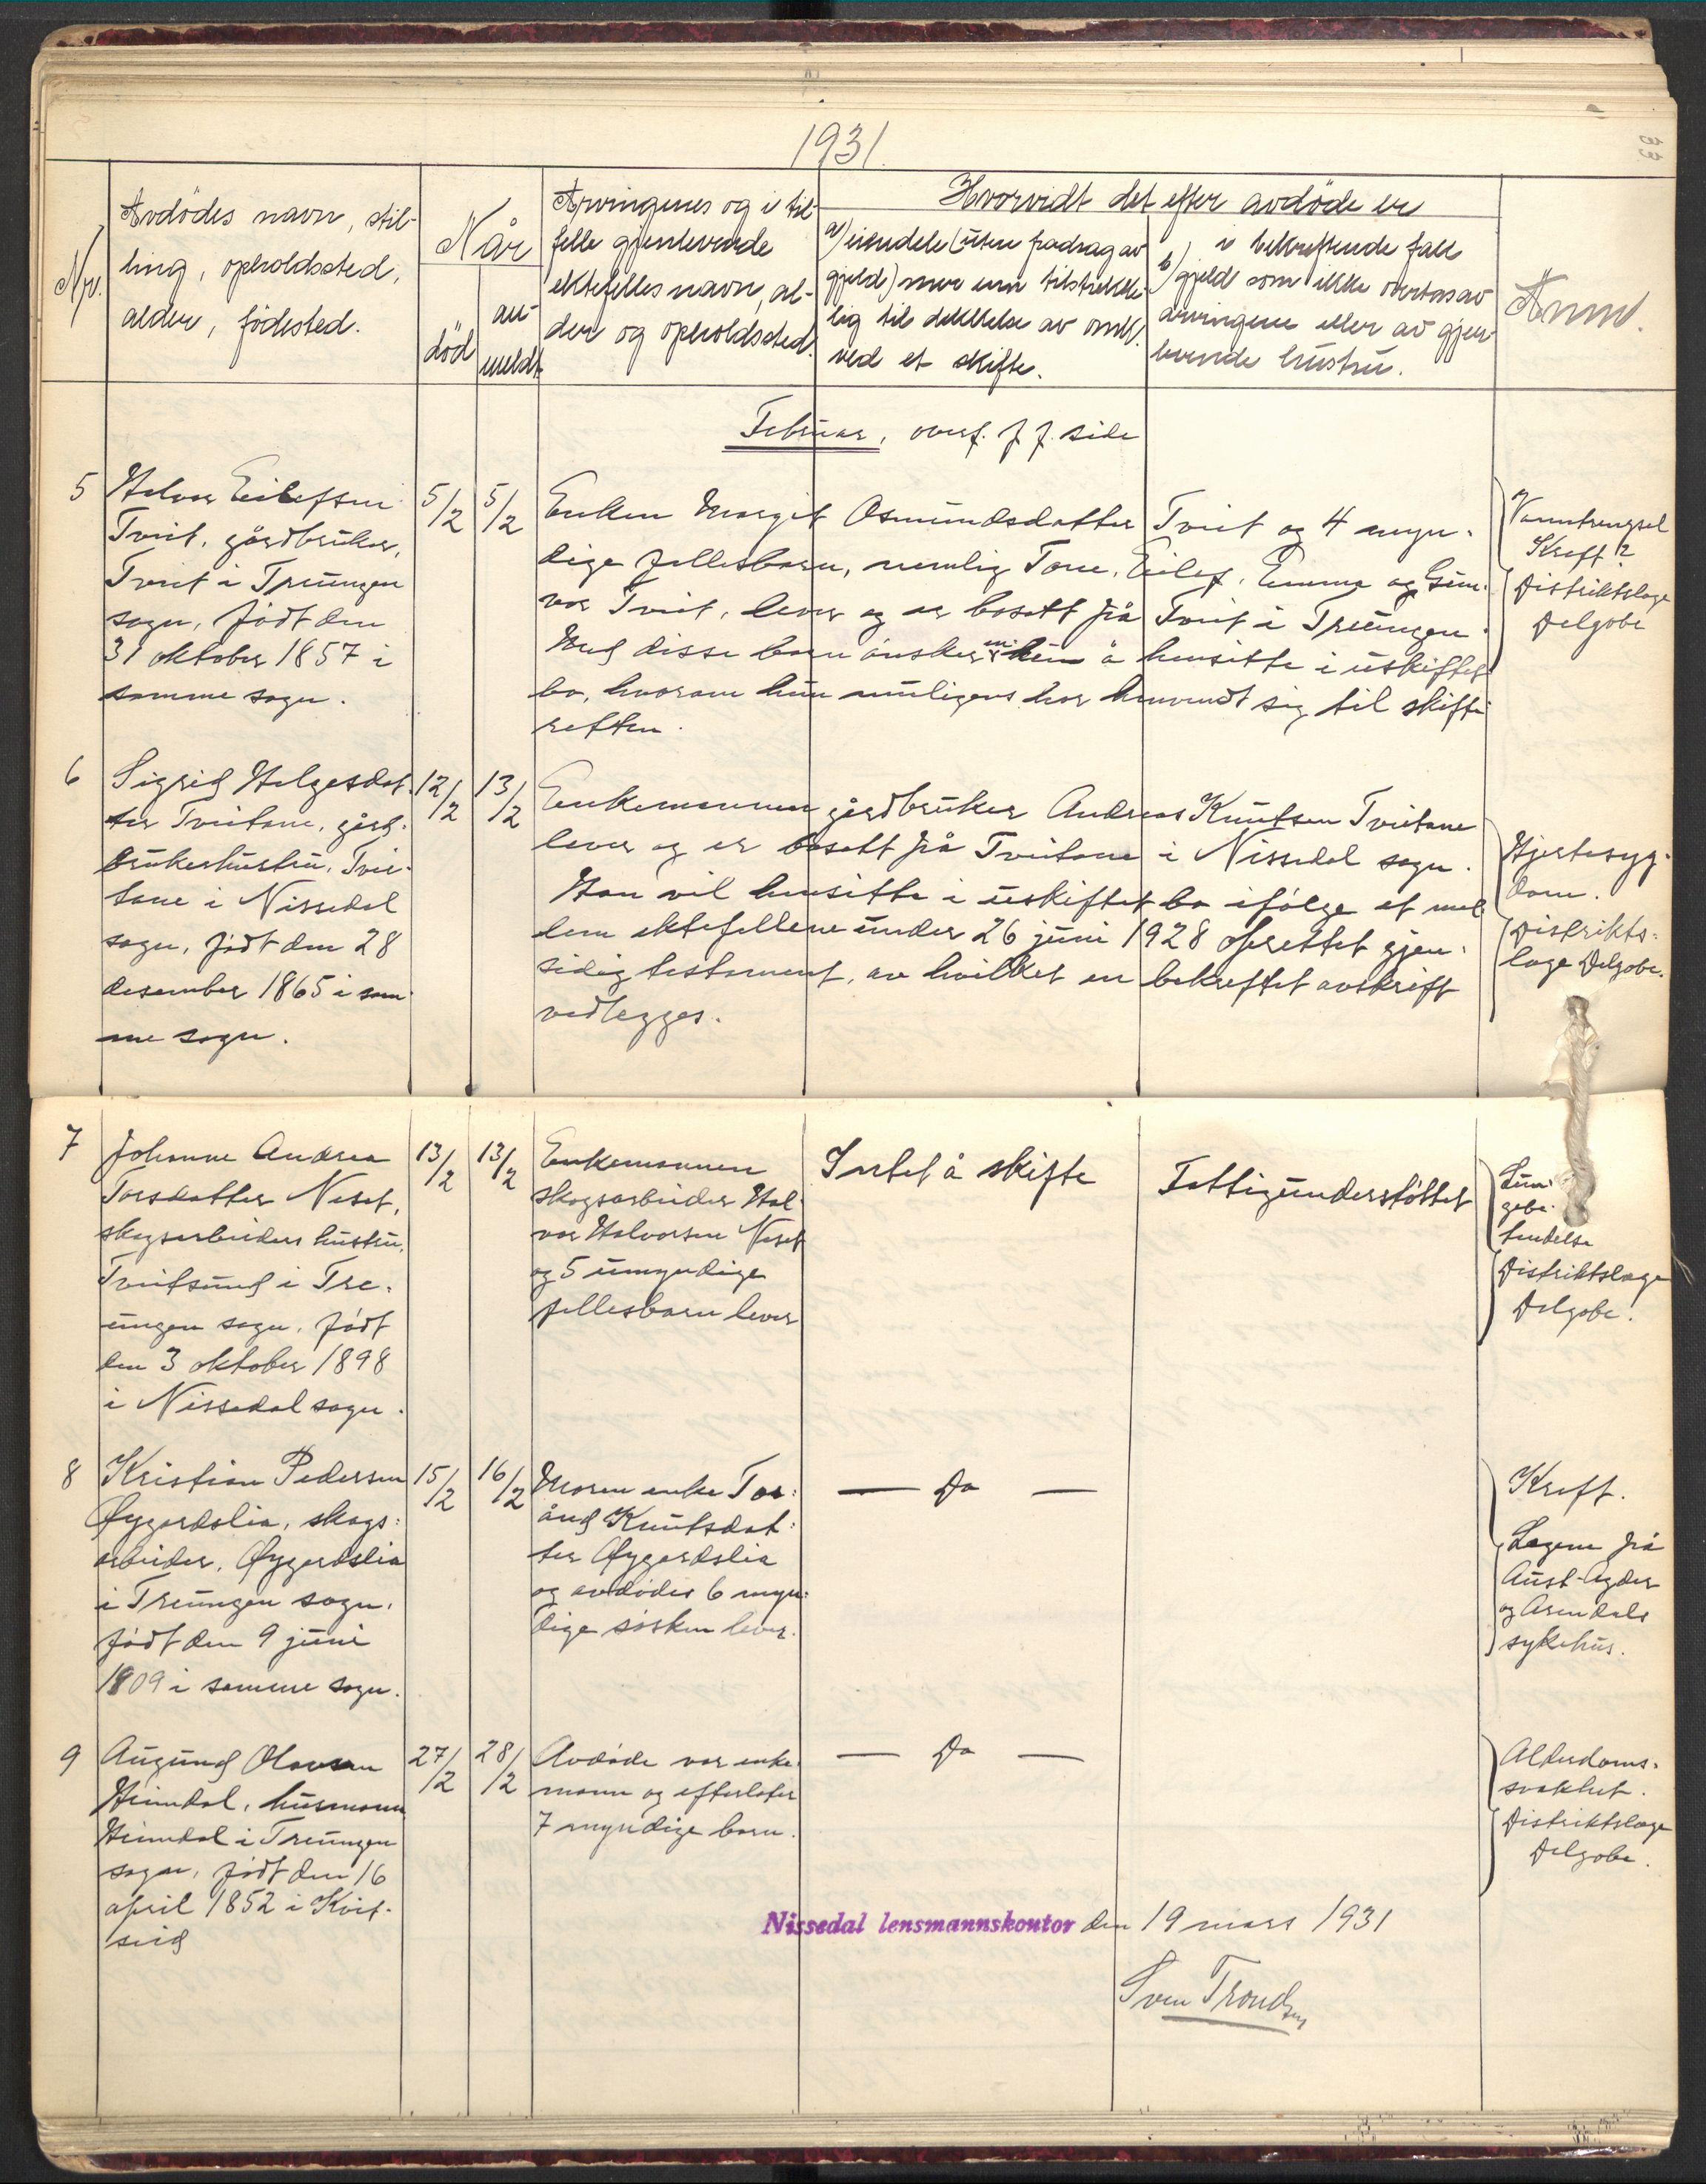 1931.
33
Nr.
Avdödes navn, stil-
ling, opholdssted,
alder, födested.
Når
död
an-
meldt
Arvingenes og i til-
felle gjenlevende
ektefelles navn, al-
der og opholdssted.
Hvorvidt det efter avdöde er
a) eiendele (uten fradrag av
gjeld) mer enn tilstrekke-
lig til dekkelse av omk.
ved et skifte.
b) i bekreftende fall
gjeld som ikke overtas av
arvingene eller av gjen-
levende hustru.
Anm.
Februar, overf. f. f. side
5
Halvor Eilefsen
Tveit, gårdbruker,
Tveit i Treungen
sogn, født den
31 oktober 1857 i
samme sogn.
5/2
5/2
Enken Margit Osmundsdatter Tveit og 4 myn-
dige fellesbarn, nemlig Tone, Eilef, Emma og Gun-
vor Tveit, lever og er bosatt på Tveit i Treungen.
Med disse barn ønsker hun å hensitte i uskiftet
bo, hvorom hun muligens har henvendt sig til skifte
retten.
Vanntrengsel
Kreft?
Distriktslæge
Delgobe
6
Sigrid Helgesdat-
ter Tveitane, gård-
brukerhustru, Tvei-
tane i Nissedal
sogn, født den 28
desember 1865 i sam-
me sogn.
12/2
13/2
Enkemannen gårdbruker Andreas Knutsen Tveitane
lever og er bosatt på Tveitane i Nissedal sogn.
Han vil hensitte i uskiftet bo ifølge et mel
lem ektefellene under 26 juni 1928 oprettet gjen-
sidig testament, av hvilket en bekreftet avskrift
vedlegges.
Hjertesyg-
dom.
Distrikts-
læge Delgobe.
7
Johanne Andrea
Torsdatter Neset,
skogsarbeiders hustru,
Tveitsund i Tre-
ungen sogn, født
den 3 oktober 1898
i Nissedal sogn.
13/2
13/2
Enkemannen
skogsarbeider Hal-
vor Halvorsen Neset
og 5 umyndige
fellesbarn lever
Intet å skifte
Fattigunderstøttet
Lun-
gebe-
tendelse
Distriktslæge
Delgobe.
8
Kristian Pedersen
Øygardslia, skogs-
arbeider, Øygardslia
i Treungen sogn,
født den 9 juni
1909 i samme sogn.
15/2
16/2
Moren enke Tor-
ånd Knutsdat-
ter Øygardslia
og avdødes 6 myn-
dige søsken lever.
— Do —
Kreft.
Lægene på
Aust-Agder
og Arendals
sykehus.
9
Augund Olavsen
Heimdal, husmann
Heimdal i Treungen
sogn, født den 16
april 1852 i Kvit-
seid
27/2
28/2
Avdøde var enke-
mann og efterlater
7 myndige barn.
— Do —
Alderdoms-
svakhet.
Distriktslæge
Delgobe.
Nissedal lensmannskontor den 19 mars 1931
Sven Trondsen